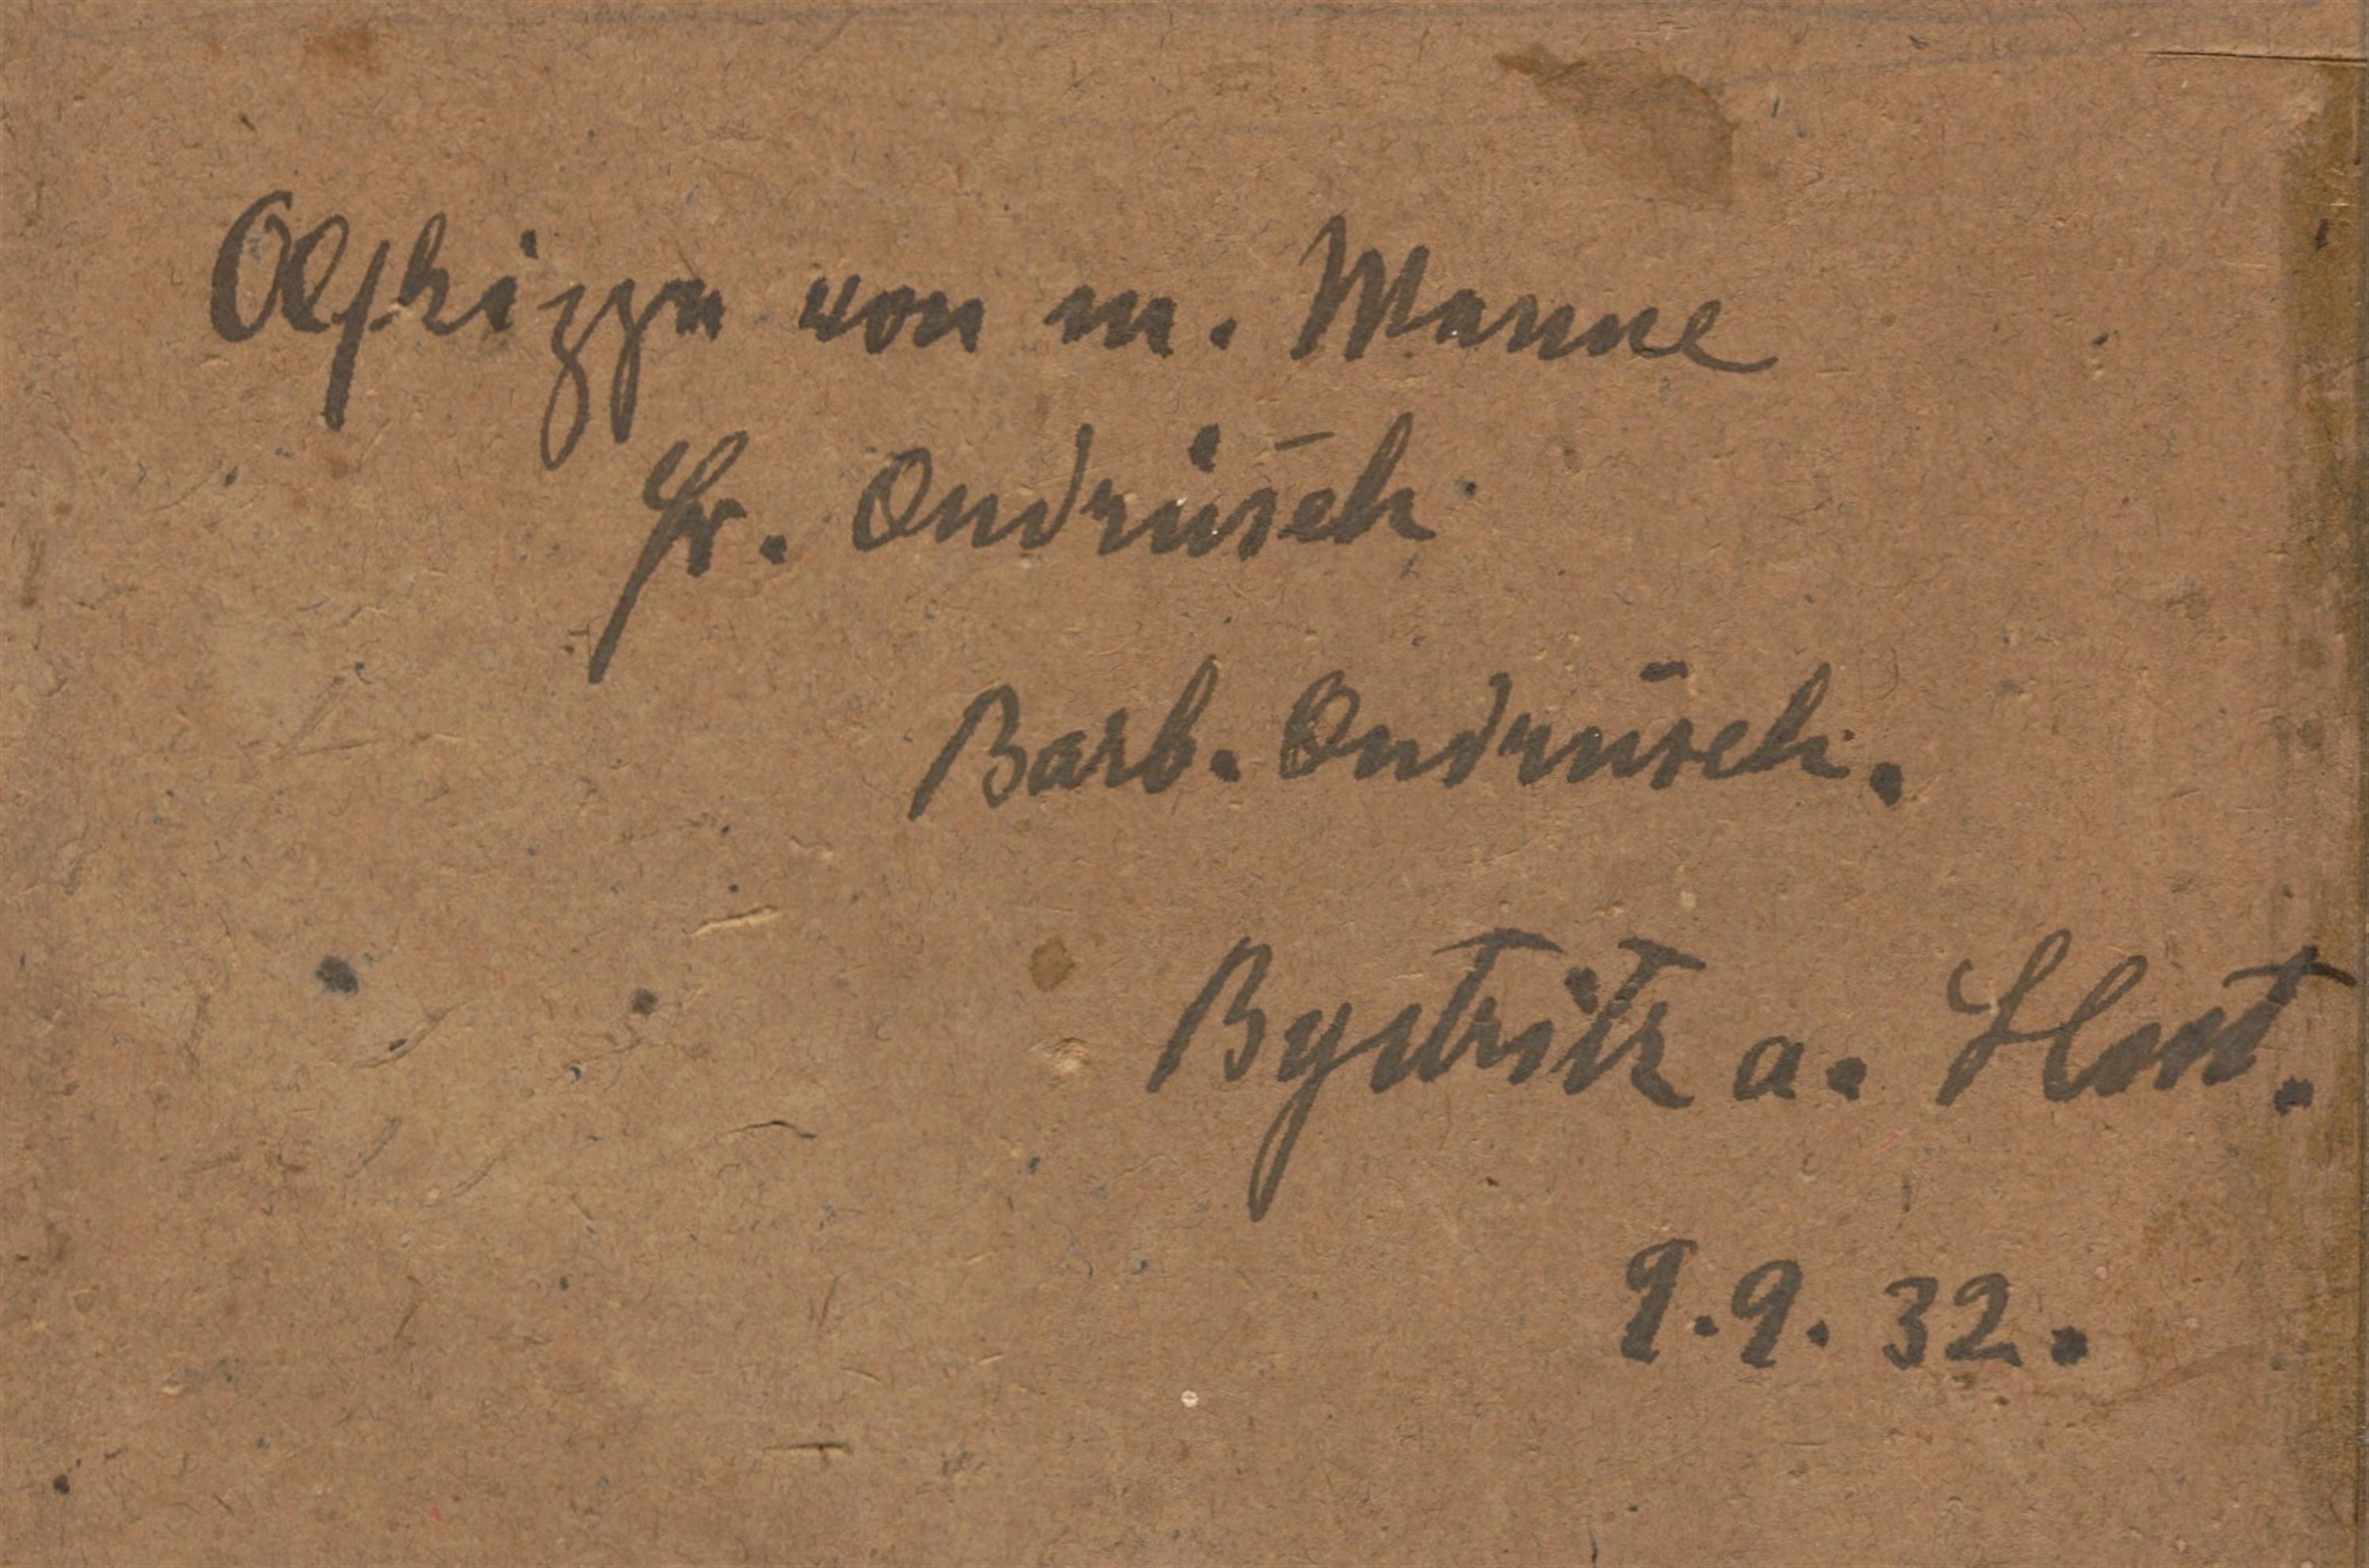 Ölskizze von m. Manne
Fr. Ondrúsch
Barb. Ondrusch.
Bystritz a. Host.
9.9.32.